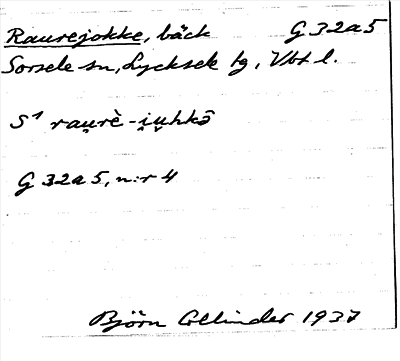 Raurejokke, bäck G 32a5
Sorsele sn, Lycksele tg, Vbt l.
S¹ rau̯rè-i̯u̯hkɔ̄
G 32a5, n:r 4
Björn Collinder 1937